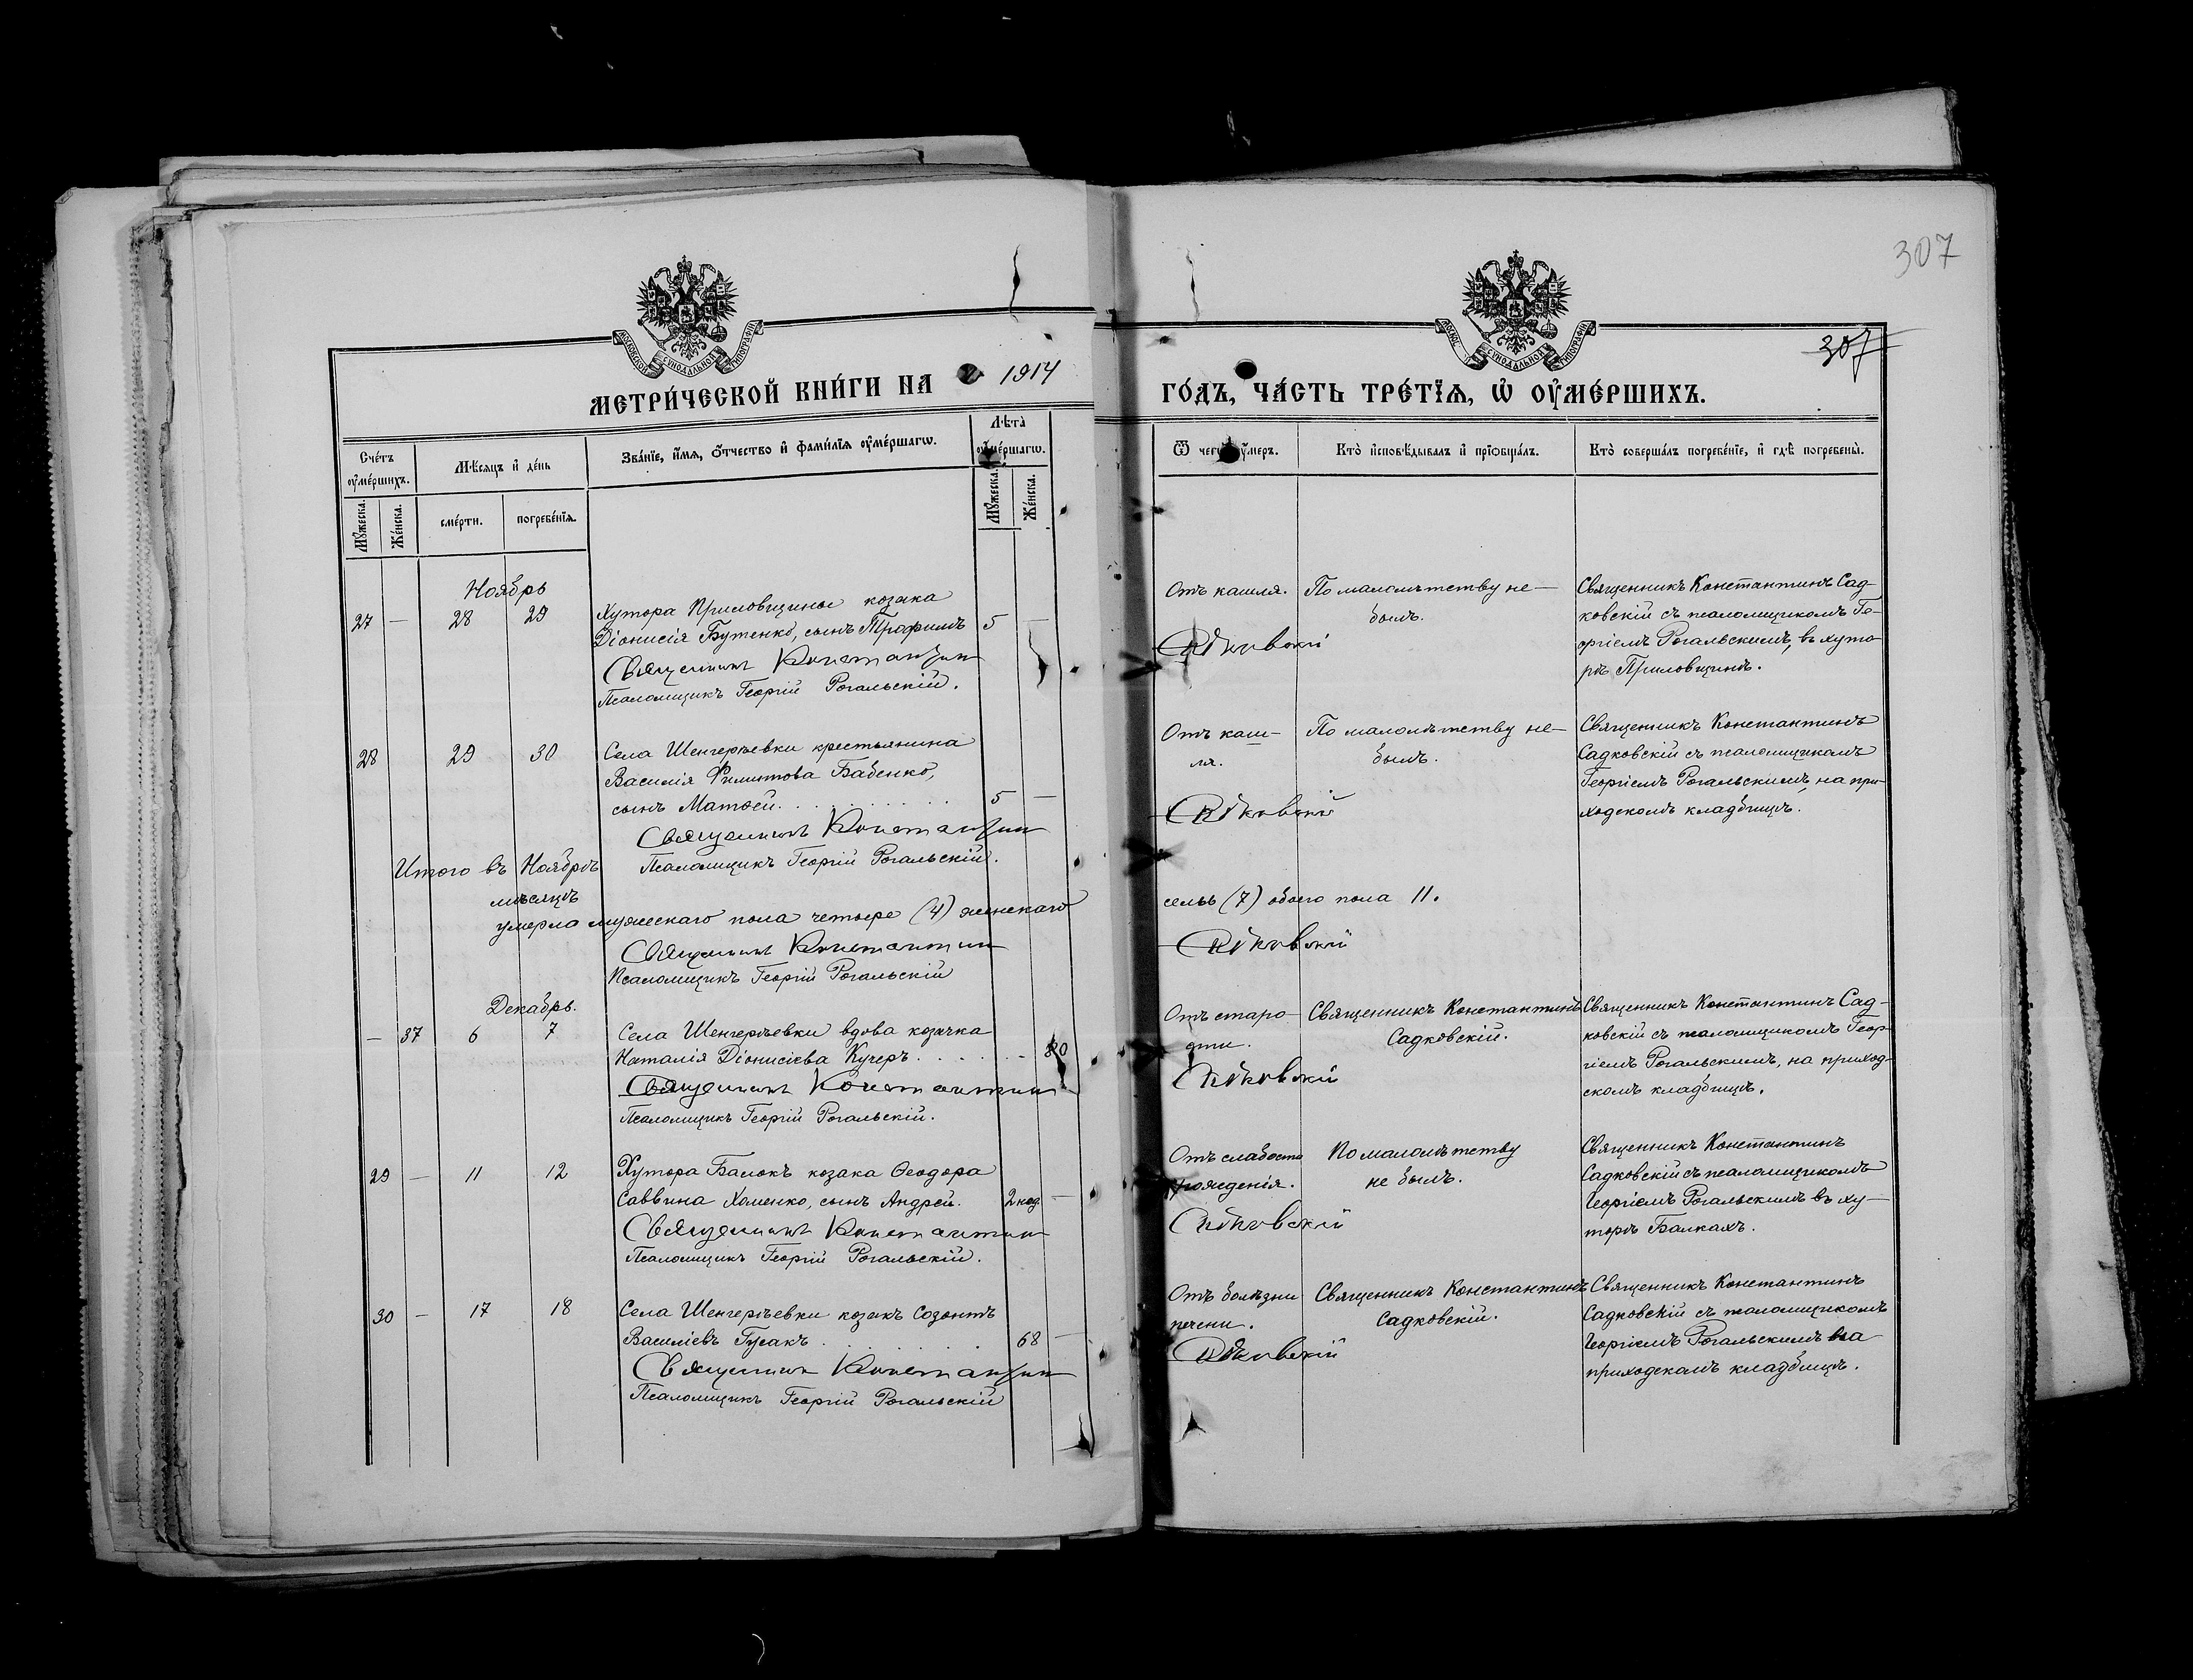 307
307
МОСКОВСКОЙ СѴНОДАЛЬНОЙ ТИПОГРАФІИ
МЕТРИ́ЧЕСКОЙ КНИ́ГИ НА 1914
ГО́ДЪ, ЧА́СТЬ ТРЕ́ТЇѦ, Ѡ҆ ОУ҆МЕ́РШИХЪ.
Сче́тъ оу҆ме́ршихъ.
Мѣ́сяцъ и҆ де́нь
Зва́нїе, и҆́мѧ, ѻ҆́тчество и҆ фами́лїѧ оу҆ме́ршагѡ.
Лѣта̀ оу҆ме́ршагѡ.
Мꙋ́жеска.
Же́нска.
сме́рти.
погребе́нїѧ.
Мꙋ́жеска.
Же́нска.
Ѿ чегѡ̀ оу҆́меръ.
Кто̀ и҆сповѣ́дывалъ и҆ прїѡбща́лъ.
Кто̀ соверша́лъ погребе́нїе, и҆ гдѣ̀ погребены̀.
Ноябрь
27 — 28 29
Хутора Приловщины козака
Діонисія Бутенко, сынъ Трофимъ 5 —
Священникъ Константин
Псаломщикъ Георгій Рогальскій.
Отъ кашля.
Садковскій
По малолѣтству не-
былъ.
Священникъ Константинъ Сад-
ковскій съ псаломщикомъ Ге-
оргіемъ Рогальскимъ, въ хуто-
рѣ Приловщинѣ.
28 29 30
Села Шенгерѣевки крестьянина
Василія Филиппова Бабенко,
сынъ Матѳей. 5 —
Священникъ Константин
Псаломщикъ Георгій Рогальскій.
Отъ каш-
ля.
Садковскій
По малолѣтству не-
былъ.
Священникъ Константинъ
Садковскій съ псаломщикомъ
Георгіемъ Рогальскимъ, на при-
ходскомъ кладбищѣ.
Итого въ Ноябрѣ
мѣсяцѣ
умерло мужескаго пола четыре (4) женскаго
семь (7) обоего пола 11.
Священникъ Константин
Садковскій
Псаломщикъ Георгій Рогальскій
Декабрь.
— 37 6 7
Села Шенгерѣевки вдова козачка
Наталія Діонисіева Кучеръ. 80
Священникъ Константин
Псаломщикъ Георгій Рогальскій.
Отъ старо-
сти.
Садковскій
Священникъ Константинъ
Садковскій.
Священникъ Константинъ Сад-
ковскій съ псаломщикомъ Геор-
гіемъ Рогальскимъ, на приход-
скомъ кладбищѣ.
29 — 11 12
Хутора Балокъ козака Ѳеодора
Саввина Хоменко, сынъ Андрей. 2 нед. —
Священникъ Константин
Псаломщикъ Георгій Рогальскій.
Отъ слабости
рожденія.
Садковскій
По малолѣтству
не былъ.
Священникъ Константинъ
Садковскій съ псаломщикомъ
Георгіемъ Рогальскимъ въ ху-
торѣ Балкахъ.
30 — 17 18
Села Шенгерѣевки козакъ Созонтъ
Василіевъ Гусакъ 68 —
Священникъ Константин
Псаломщикъ Георгій Рогальскій
Отъ болѣзни
печени.
Садковскій
Священникъ Константинъ
Садковскій.
Священникъ Константинъ
Садковскій съ псаломщикомъ
Георгіемъ Рогальскимъ на
приходскомъ кладбищѣ.